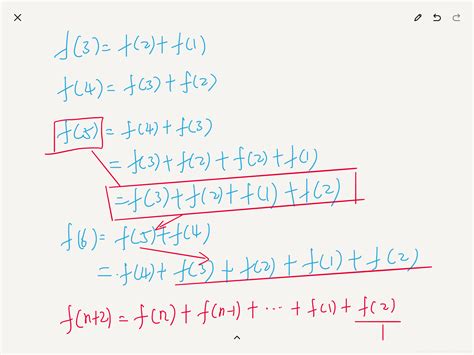 f(3) = f(2) + f(1)
f(4) = f(3) + f(2)
f(5) = f(4) + f(3)
= f(3) + f(2) + f(2) + f(1)
= f(3) + f(2) + f(1) + f(2)
f(6) = f(5) + f(4)
= f(4) + f(3) + f(2) + f(1) + f(2)
f(n+2) = f(n) + f(n-1) + ... + f(1) + f(2)
1